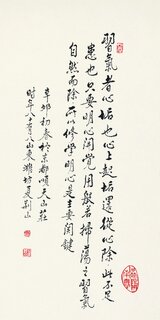 習氣者心垢也心上起垢還從心除此不足
患也只要明心開覺用般若掃蕩之習氣
自然而除所以修學明心是主要關鍵
辛卯初春於京都順天山莊
時年八十有八山東濰坊夏荊山